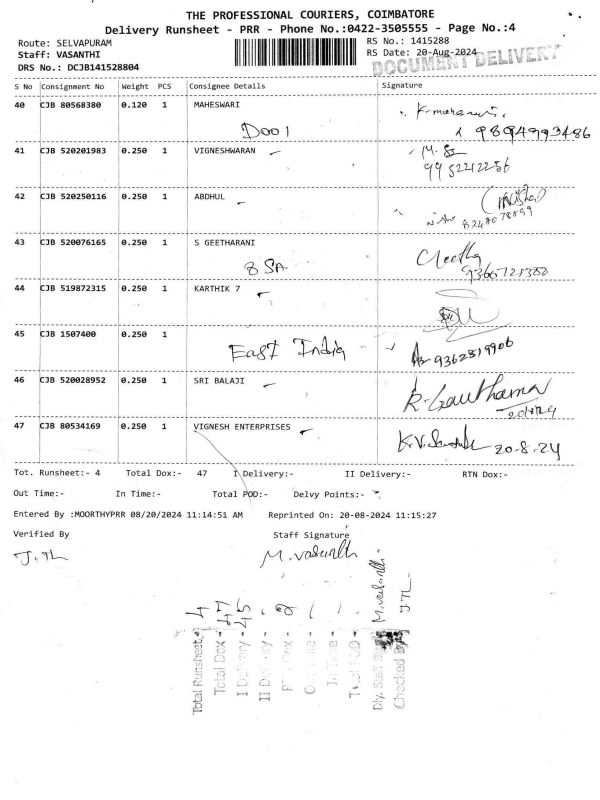 THE PROFESSIONAL COURIERS, COIMBATORE
Delivery Runsheet - PRR - Phone No.:0422-3505555 - Page No.:4
Route: SELVAPURAM
RS No.: 1415288
Staff: VASANTHI
RS Date: 20-Aug-2024
DRS No.: DCJB141528804
DOCUMENT DELIVERY
S No Consignment No Weight PCS Consignee Details Signature
40 CJB 80568380 0.120 1 MAHESWARI
Door
9894993486
41 CJB 520201983 0.250 1 VIGNESHWARAN
9952212256
42 CJB 520250116 0.250 1 ABDHUL
8248078899
43 CJB 520076165 0.250 1 S GEETHARANI
Geetha
44 CJB 519872315 0.250 1 KARTHIK 7
45 CJB 1507400 0.250 1
East India
9362819906
46 CJB 520028952 0.250 1 SRI BALAJI
R. Gowthama
47 CJB 80534169 0.250 1 VIGNESH ENTERPRISES
20-8-24
Tot. Runsheet:- 4 Total Dox:- 47 I Delivery:- II Delivery:- RTN Dox:-
Out Time:- In Time:- Total POD:- Delvy Points:-
Entered By :MOORTHYPRR 08/20/2024 11:14:51 AM Reprinted On: 20-08-2024 11:15:27
Verified By Staff Signature
M. Vasanth
Total Runsheet 4
Total Dox 47
I Delivery 45
II Delivery
RTN Dox 2
Out Time
In Time
Total POD
Dly. Staff Sign M. Vasanth
Checked By J.TL